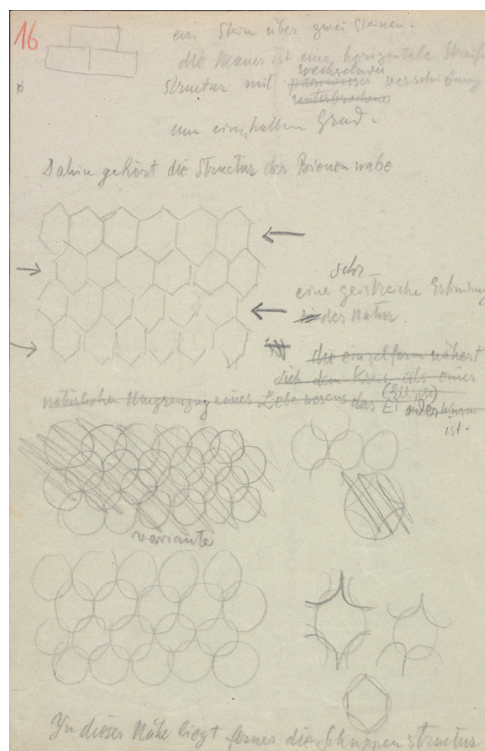 16
ein Stein über zwei Steinen.
die Mauer ist eine horizontale Streif
wechselnder
Structur mit verschiebung
unterbrochener
um ein halben Grad.
Dahin gehört die Structur der Bienenwabe
sehr
eine geistreiche Erfindung
der Natur.
die einzelform nähert
sich dem Kreis als einer
(Ellipse)
natürlichen Umgrenzung eines Lebewesens das Ei oder Wurm
ist.
variante
In dieser Nähe liegt ferner die Schuppen structur